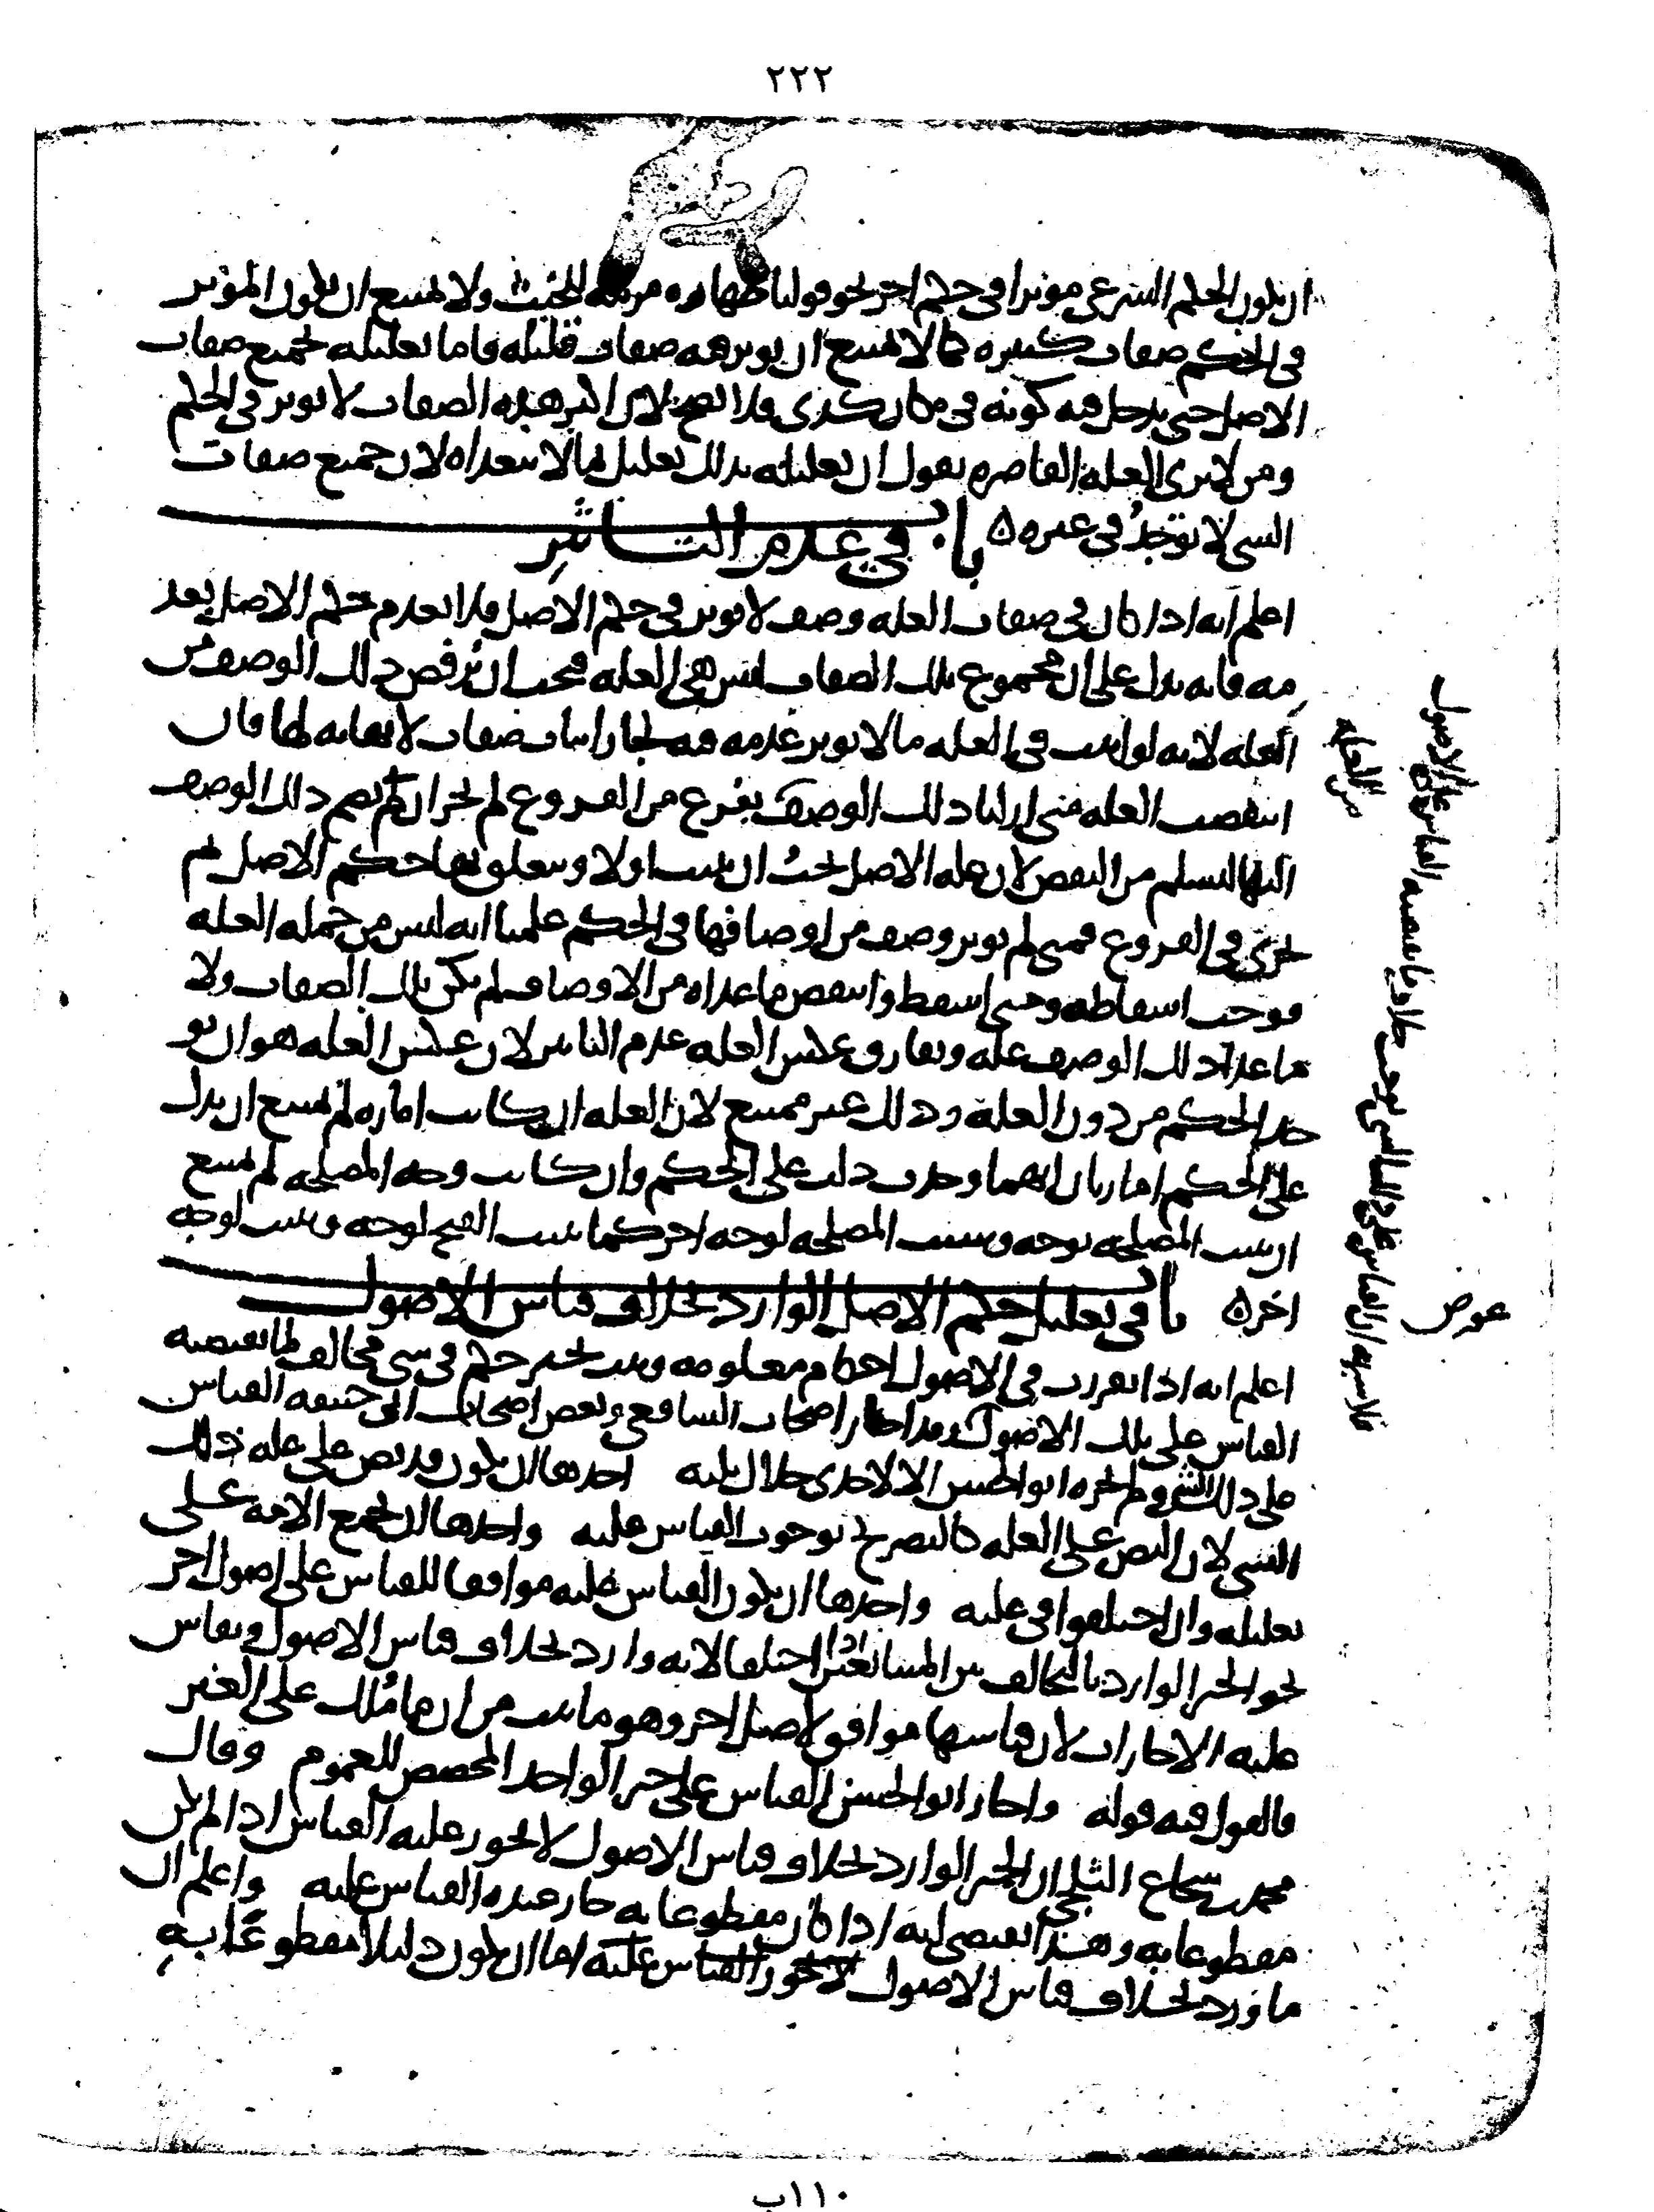 ٢٢٢
ان يكون الحكم الشرعي موثرا في حكم اخر نحو قولنا طهاره مزيله للحدث ولا يمتنع ان يكون الموثر
في الحكم صفات كثيره كما لا يمتنع ان يوثر فيه صفات قليله فاما تعليله بجميع صفات
الاصل حتى يدخل فيه كونه في مكان كذى فلا يصح لان اكثر هذه الصفات لا يوثر في الحكم
ومن لا يرى العله القاصره يقول ان تعليله بذلك تعليل بما لا يتعداه لان جميع صفات
الشي لا توجد في غيره ٥ باب في عدم التاثير
اعلم انه اذا كان في صفات العله وصف لا يوثر في حكم الاصل فلا يعدم حكم الاصل بعد
مه فانه يدل على ان مجموع تلك الصفات ليس هي العله فيجب ان يرفض ذلك الوصف من
العله لانه لو اثبت في العله ما لا يوثر عدمه فيه لجاز اثبات صفات لا نهايه لها فان
انتقضت العله متى ازلنا ذلك الوصف بفرع من الفروع لم يجز ان يضم ذلك الوصف
اليها لتسلم من النقض لان عله الاصل يجب ان تثبت اولا ويتعلق بها حكم الاصل ثم
تجرى في الفروع فمتى لم يوثر وصف من اوصافها في الحكم علمنا انه ليس من جمله العله
فوجب اسقاطه ومتى اسقط وانتقض ما عداه من الاوصاف لم يكن تلك الصفات ولا
ما عدا ذلك الوصف عله ويفارق عكس العله عدم التاثير لان عكس العله هو ان يو
جد الحكم من دون العله وذلك غير ممتنع لان العله ان كانت اماره لم يمتنع ان يدل
على الحكم امارتان ايهما وجدت دلت على الحكم وان كانت وجه المصلحه لم يمتنع
ان يثبت المصلحه لوجه ويثبت المصلحه لوجه اخر كما يثبت القبح لوجه ويثبت لوجه
اخر ٥ باب في تعليل حكم الاصل الوارد بخلاف قياس الاصول
اعلم انه اذا تقررت في الاصول احكام معلومه ويثبت بخبر حكم في شي مخالف لما يقتضيه
القياس على تلك الاصول فقد اجاز اصحاب الشافعي وبعض اصحاب ابي حنيفه القياس
على ذلك الشي ولم يجزه ابو الحسن الا لاحدى خلال ثلثه احدها ان يكون قد نص على عله ذلك
الشي لان النص على العله كالتصريح بوجوب القياس عليه واحدها ان تجمع الامه على
تعليله وان اختلفوا في علته واحدها ان يكون القياس عليه موافقا للقياس على اصول اخر
نحو الخبر الوارد بالتحالف بين المتبايعين اذا اختلفا لانه وارد بخلاف قياس الاصول ويقاس
عليه الاجارات لان قياسها موافق لاصل اخر وهو ما ثبت من ان ما مُلك على الغير
فالقول فيه قوله واجاز ابو الحسن القياس على خبر الواحد المخصص للعموم وقال
محمد بن شجاع الثلجي ان الخبر الوارد بخلاف قياس الاصول لا يجوز عليه القياس اذا لم يكن
مقطوعا به وهذا يقتضي انه اذا كان مقطوعا به جاز عنده القياس عليه واعلم ان
ما ورد بخلاف قياس الاصول لا يجوز القياس عليه اما ان يكون دليلا مقطوعًا به
من العله
عوض
١١٠ب